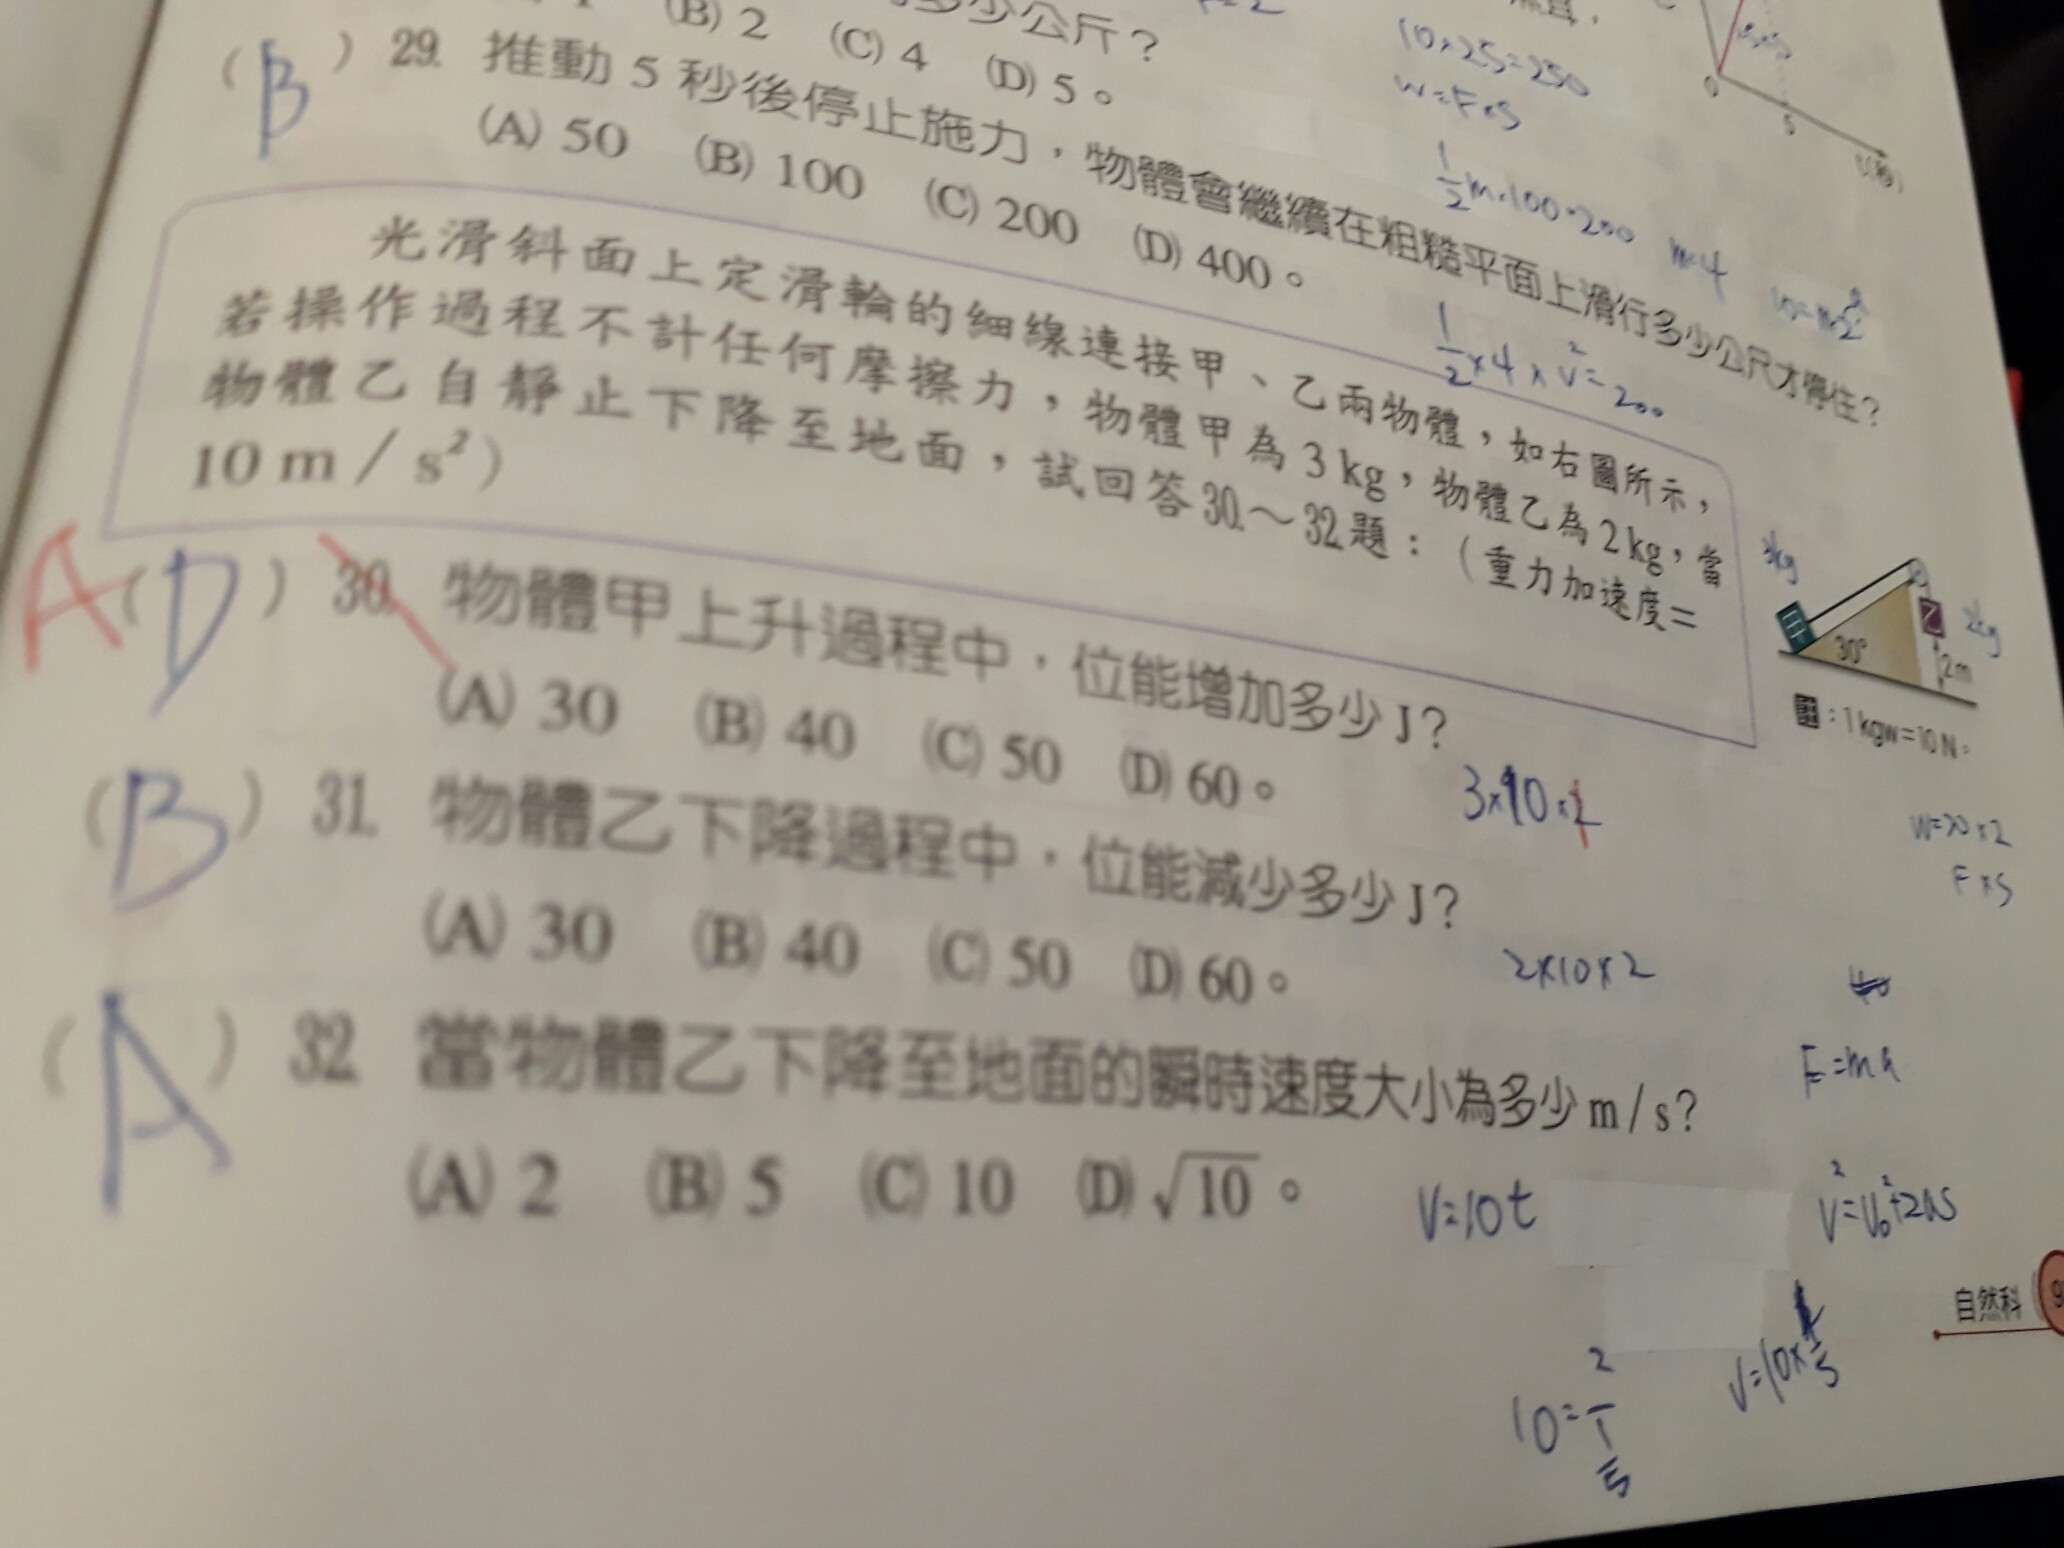 (B) 2 (C) 4 (D) 5。
多少公斤?
(B) 29. 推動 5 秒後停止施力,物體會繼續在粗糙平面上滑行多少公尺才停住?
(A) 50 (B) 100 (C) 200 (D) 400。
10×25=250
W=F×S
1/2 m·100=200 m=4
1/2×4×v²=200
0
5
t(秒)
光滑斜面上定滑輪的細線連接甲、乙兩物體,如右圖所示,
若操作過程不計任何摩擦力,物體甲為 3 kg,物體乙為 2 kg,當
物體乙自靜止下降至地面,試回答 30.~32.題:(重力加速度=
10 m/s²)
3kg
甲
乙
2kg
30°
2m
註:1 kgw=10 N。
A (D) 30. 物體甲上升過程中,位能增加多少 J?
(A) 30 (B) 40 (C) 50 (D) 60。
3×10×
W=20×2
F×S
(B) 31. 物體乙下降過程中,位能減少多少 J?
(A) 30 (B) 40 (C) 50 (D) 60。
2×10×2
F=ma
(A) 32. 當物體乙下降至地面的瞬時速度大小為多少 m/s?
(A) 2 (B) 5 (C) 10 (D) √10。
V=10t
V²=V₀²+2as
自然科